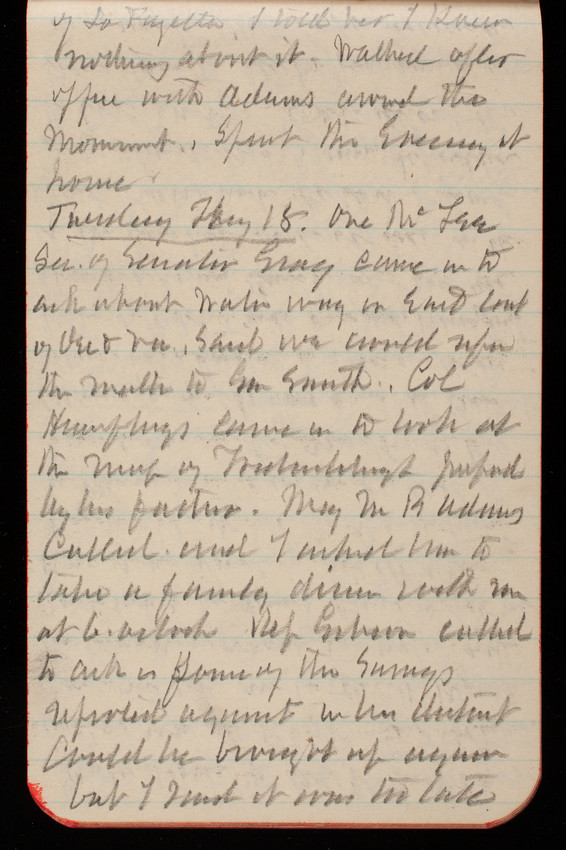 of La Fayette I told her I knew
nothing about it. Walked after
office with Adams around the
Monument, Spent the Evening at
home
Tuesday May 15. One Mr Lee
Sec. of Senator Gray came in to
ask about water way on East coast
of Del & Va. Said we would refer
the matter to Gen Smith. Col
Humphreys came in to look at
the map of prepared
by his father. Maj M B Adams
Called and I asked him to
take a family dinner with me
at 6. oclock Rep Gibson called
to ask if some of the Surveys
reported against in his district
Could be brought up again
but I said it was too late